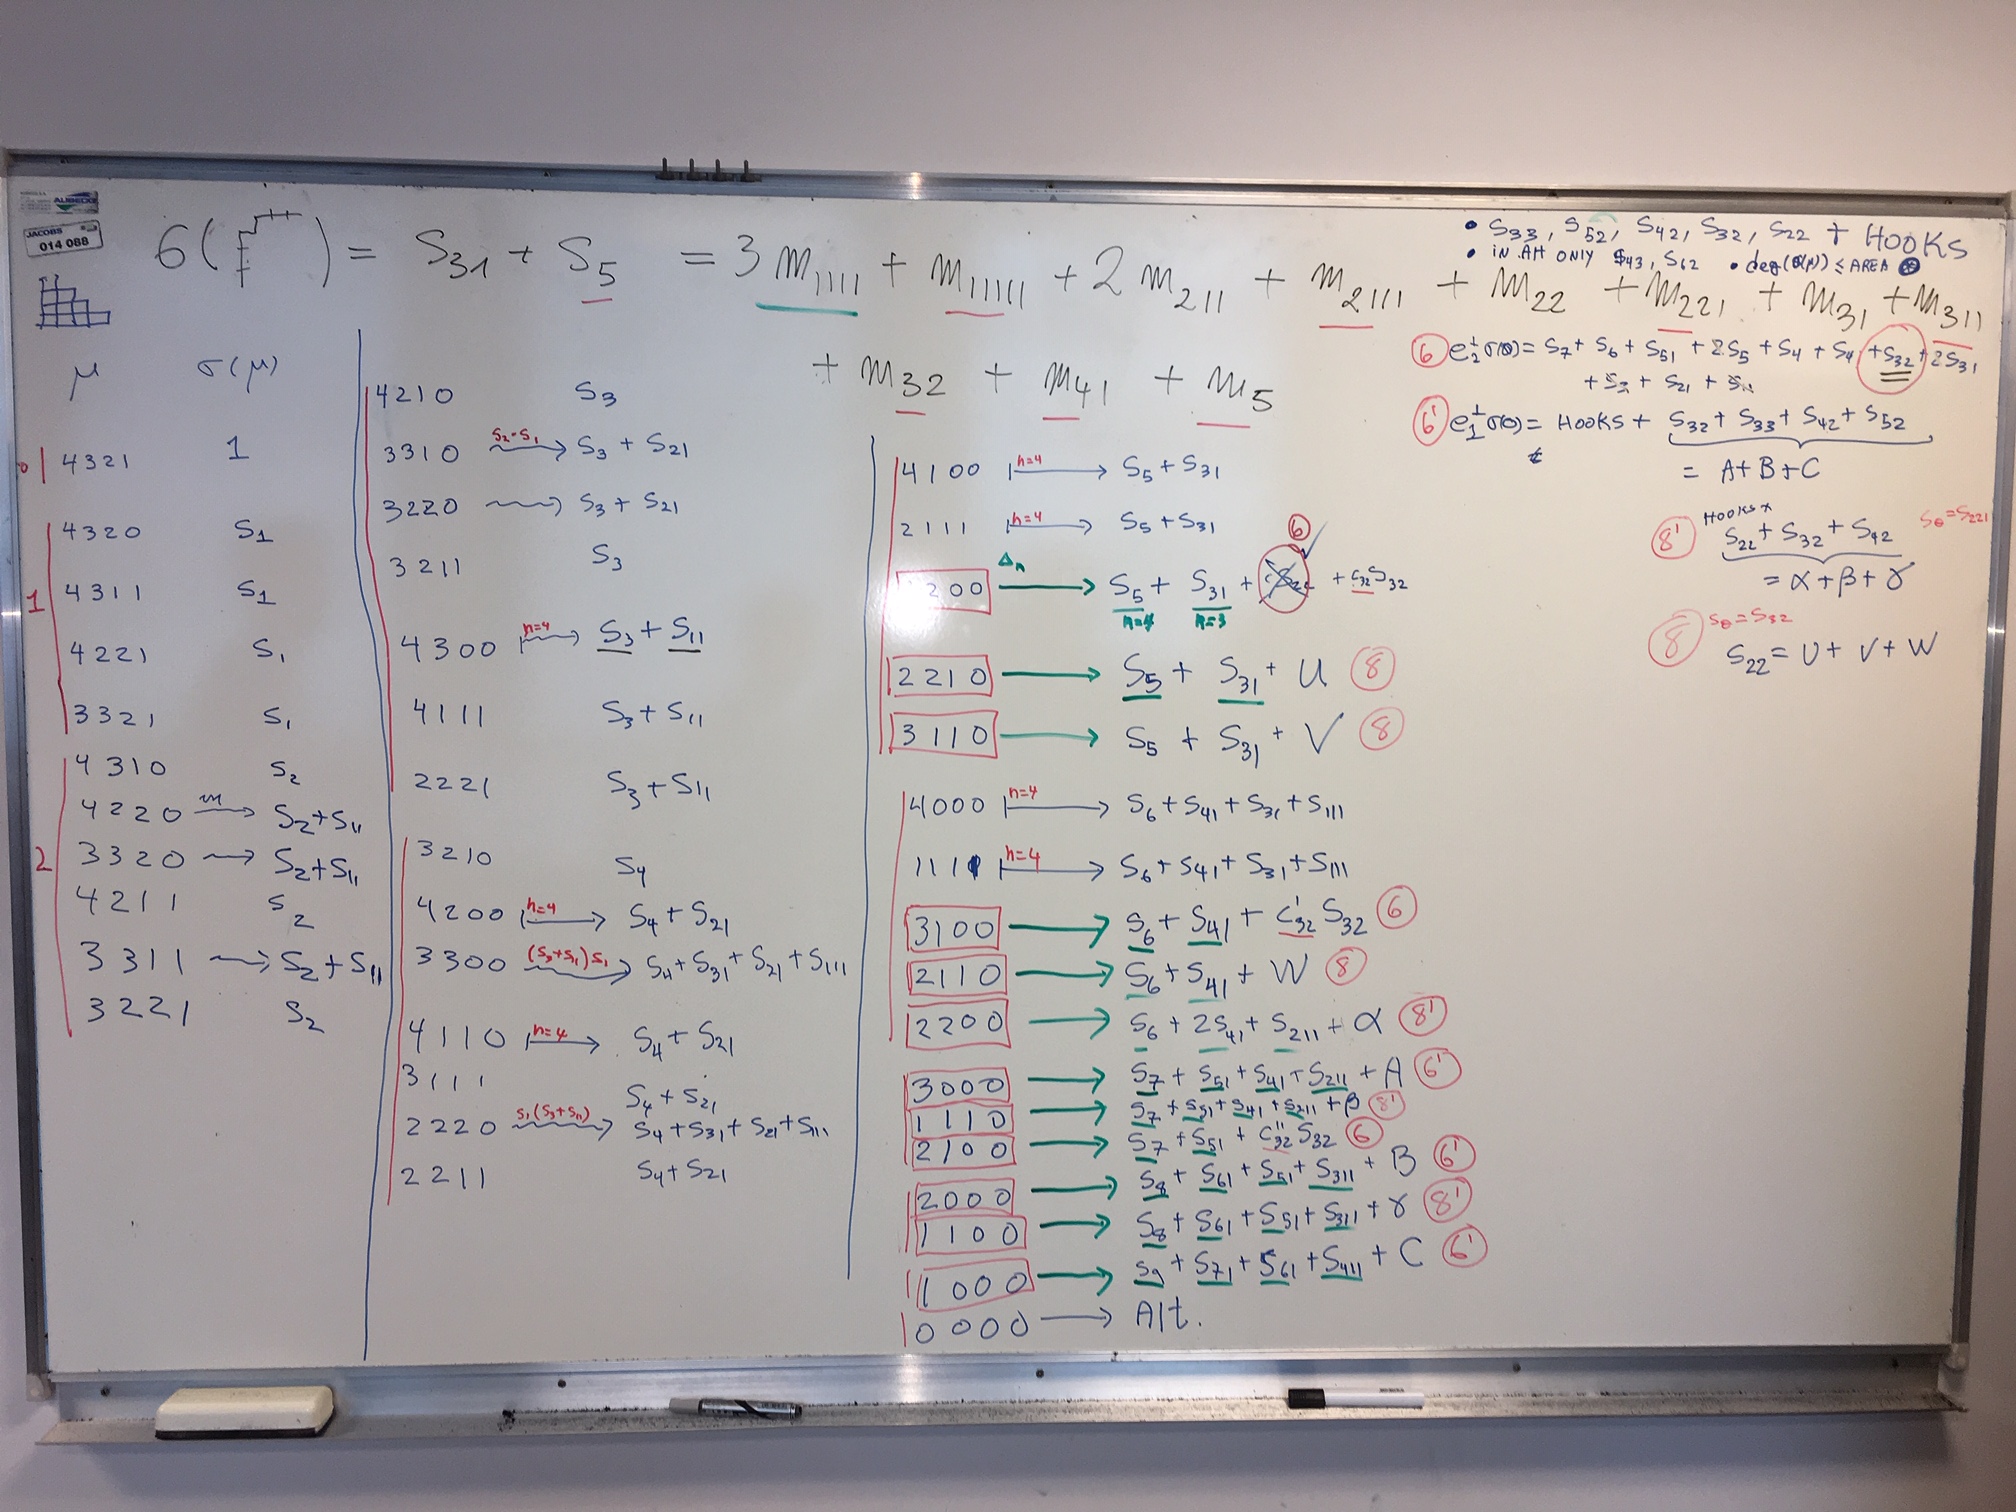 JACOBS
014 088
6( ) = S31 + S5 = 3 m1111 + m11111 + 2 m211 + m2111 + m22 + m221 + m31 + m311
+ m32 + m41 + m5
μ σ(μ)
0
4321 1
1
4320 S1
4311 S1
4221 S1
3321 S1
2
4310 S2
4220 → S2+S11
3320 → S2+S11
4211 S2
3311 → S2+S11
3221 S2
4210 S3
3310 S2·S1 → S3 + S21
3220 → S3 + S21
3211 S3
4300 n=4 → S3 + S11
4111 S3+S11
2221 S3+S11
3210 S4
4200 n=4 → S4 + S21
3300 (S3+S11)S1 → S4+S31+S21+S111
4110 n=4 → S4+S21
3111 S4+S21
2220 S1(S3+S11) → S4+S31+S21+S111
2211 S4+S21
4100 n=4 → S5+S31
2111 n=4 → S5+S31
200 Δn → S5 + S31 + + c32 S32 6 ✓
n=4 n=3
2210 → S5 + S31 + U 8
3110 → S5 + S31 + V 8
4000 n=4 → S6+S41+S31+S111
1111 n=4 → S6+S41+S31+S111
3100 → S6+S41+C'32 S32 6
2110 → S6+S41+W 8
2200 → S6+2S41+S211+α 8'
3000 → S7+S51+S41+S211+A 6'
1110 → S7+S51+S41+S211+β 8'
2100 → S7+S51+C''32 S32 6
2000 → S8+S61+S51+S311+B 6'
1100 → S8+S61+S51+S311+γ 8'
1000 → S9+S71+S61+S411+C 6'
0000 → Alt.
• S33, S52, S42, S32, S22 + HOOKS
• IN AH ONLY S43, S62 • deg(σ(μ)) ≤ AREA
6 e2⊥σ(0) = S7+S6+S51+2S5+S4+S41+S32+2S31
+ S3 + S21 +
6' e1⊥σ(0) = HOOKS + S32+S33+S42+S52
= A+B+C
HOOKS +
8' S22+S32+S42 Sθ=S221
= α+β+γ
Sθ=S32
8 S22 = U + V + W